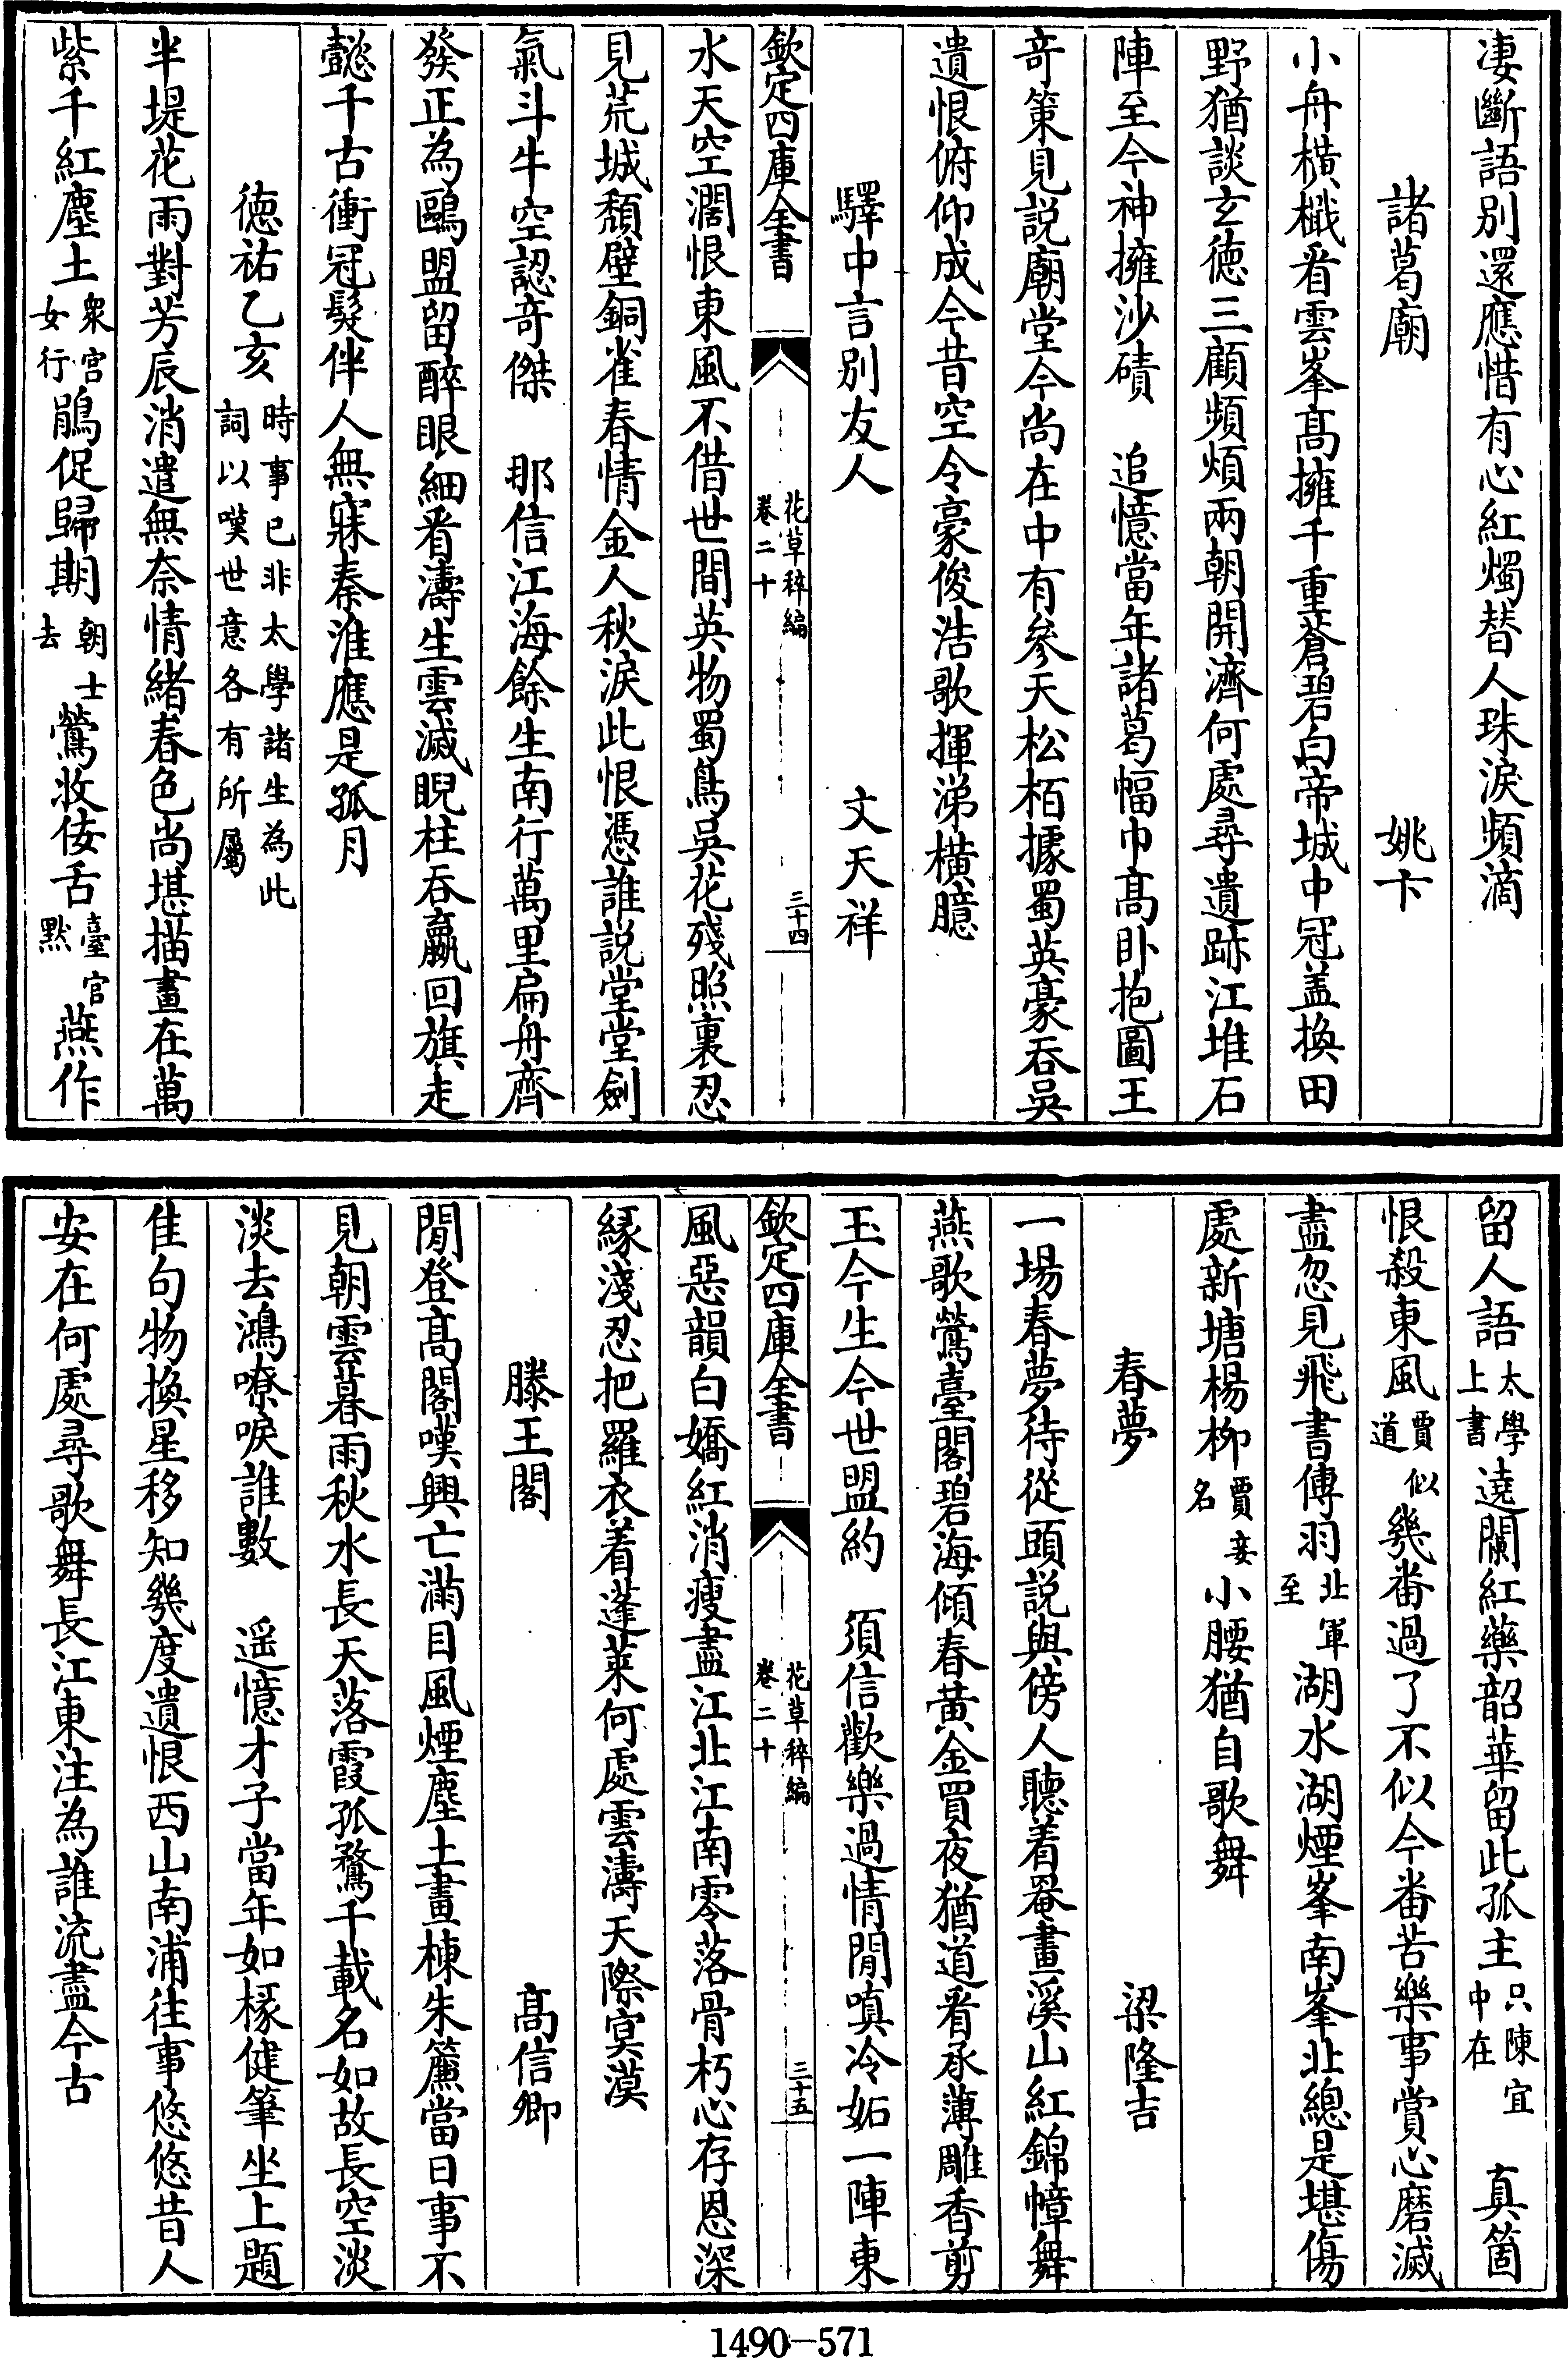 凄斷語别還應惜有心紅燭替人珠淚頻滴
諸葛廟 姚卞
小舟横檝看雲峯髙擁千重蒼碧白帝城中冠盖換田
野猶談玄徳三顧頻煩兩朝開濟何處尋遺跡江堆石
陣至今神擁沙磧 追憶當年諸葛幅巾髙卧抱圖王
竒策見説廟堂今尚在中有參天松栢據蜀英豪吞吳
遺恨俯仰成今昔空令豪俊浩歌揮涕横臆
驛中言别友人 文天祥
欽定四庫全書 花草稡編 卷二十 三十四
水天空濶恨東風不借世間英物蜀鳥吳花殘照裏忍
見荒城頽壁銅雀春情金人秋淚此恨憑誰説堂堂劍
氣斗牛空認竒傑 那信江海餘生南行萬里扁舟齊
發正為鷗盟留醉眼細看濤生雲滅睨柱吞嬴回旗走
懿千古衝冠髮伴人無寐秦淮應是孤月
徳祐乙亥 時事已非太學諸生為此詞以嘆世意各有所屬
半堤花雨對芳辰消遣無奈情緒春色尚堪描畫在萬
紫千紅塵土 衆宫女行 鵑促歸期 朝士去 鶯收佞舌 臺官默 燕作
留人語 太學上書 遶闌紅藥韶華留此孤主 只陳宜中在 真箇
恨殺東風 賈似道 幾畨過了不似今畨苦樂事賞心磨滅
盡忽見飛書傳羽 北軍至 湖水湖煙峯南峯北總是堪傷
處新塘楊柳 賈妾名 小腰猶自歌舞
春夢 梁隆吉
一場春夢待從頭説與傍人聽着罨畫溪山紅錦幛舞
燕歌鶯臺閣碧海傾春黄金買夜猶道看承薄雕香剪
玉今生今世盟約 須信歡樂過情閒嗔冷妬一陣東
欽定四庫全書 花草稡編 卷二十 三十五
風惡韻白嬌紅消瘦盡江北江南零落骨朽心存恩深
縁淺忍把羅衣着蓬莱何處雲濤天際㝠漠
滕王閣 髙信卿
閒登髙閣嘆興亡滿目風煙塵土畫棟朱簾當日事不
見朝雲暮雨秋水長天落霞孤鶩千載名如故長空淡
淡去鴻嘹唳誰數 遥憶才子當年如椽健筆坐上題
佳句物換星移知幾度遺恨西山南浦往事悠悠昔人
安在何處尋歌舞長江東注為誰流盡今古
1490-571